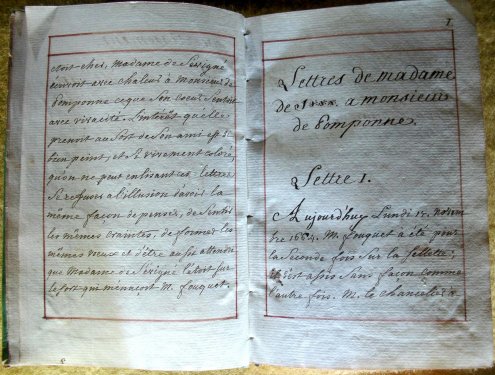 etoit cher, madame de Sévigné
écrivoit avec chaleur à monsieur de
Pomponne ce que Son coeur Sentoit
avec vivacité. L'intérêt qu'elle
prenoit au Sort de Son ami est Si
bien peint, et si vivement coloré,
qu'on ne peut en lisant ces lettres
Se refuser a l'illusion d'avoir la
même façon de penser, de Sentir
les mêmes craintes, de former les
mêmes voeux et d'être aussi attendri
que Madame de Sévigné le toit sur
le sort qui menaçoit M. fouquet.
1
Lettres de madame
de S*** a monsieur
de Pomponne.
Lettre 1.
Aujourd'huy Lundi 17. novem
bre 1664. M. fouquet a été pour
la Seconde fois Sur la Sellette;
il S'est assis Sans façon comme
l'autre fois. M. le chancelier a